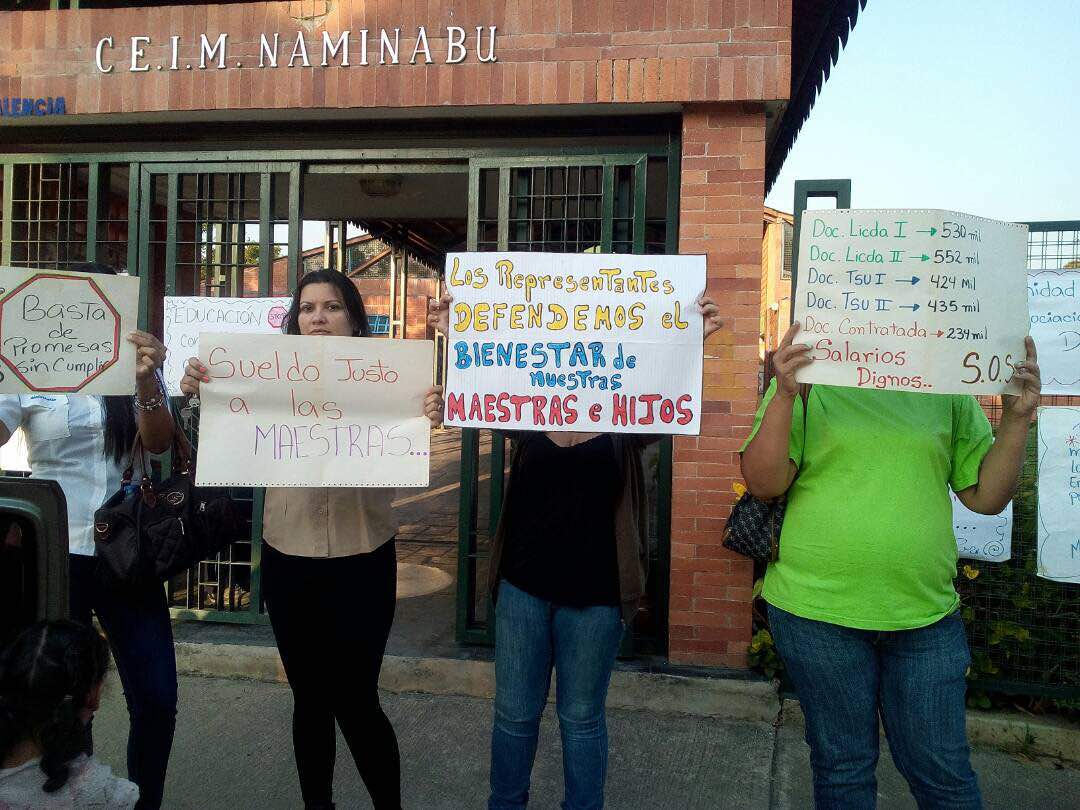 C.E.I.M. NAMINABU
ALENCIA
BASTA
de
PROMESAS
sin Cumplir
EDUCACIÓN
Sueldo Justo
a las
MAESTRAS...
Los Representantes
DEFENDEMOS el
BIENESTAR de
nuestras
MAESTRAS e HIJOS
Doc. Licda I → 530 mil
Doc. Licda II → 552 mil
Doc. TSU I → 424 mil
Doc. TSU II → 435 mil
Doc. Contratada → 234 mil
Salarios
Dignos..
S.O.S